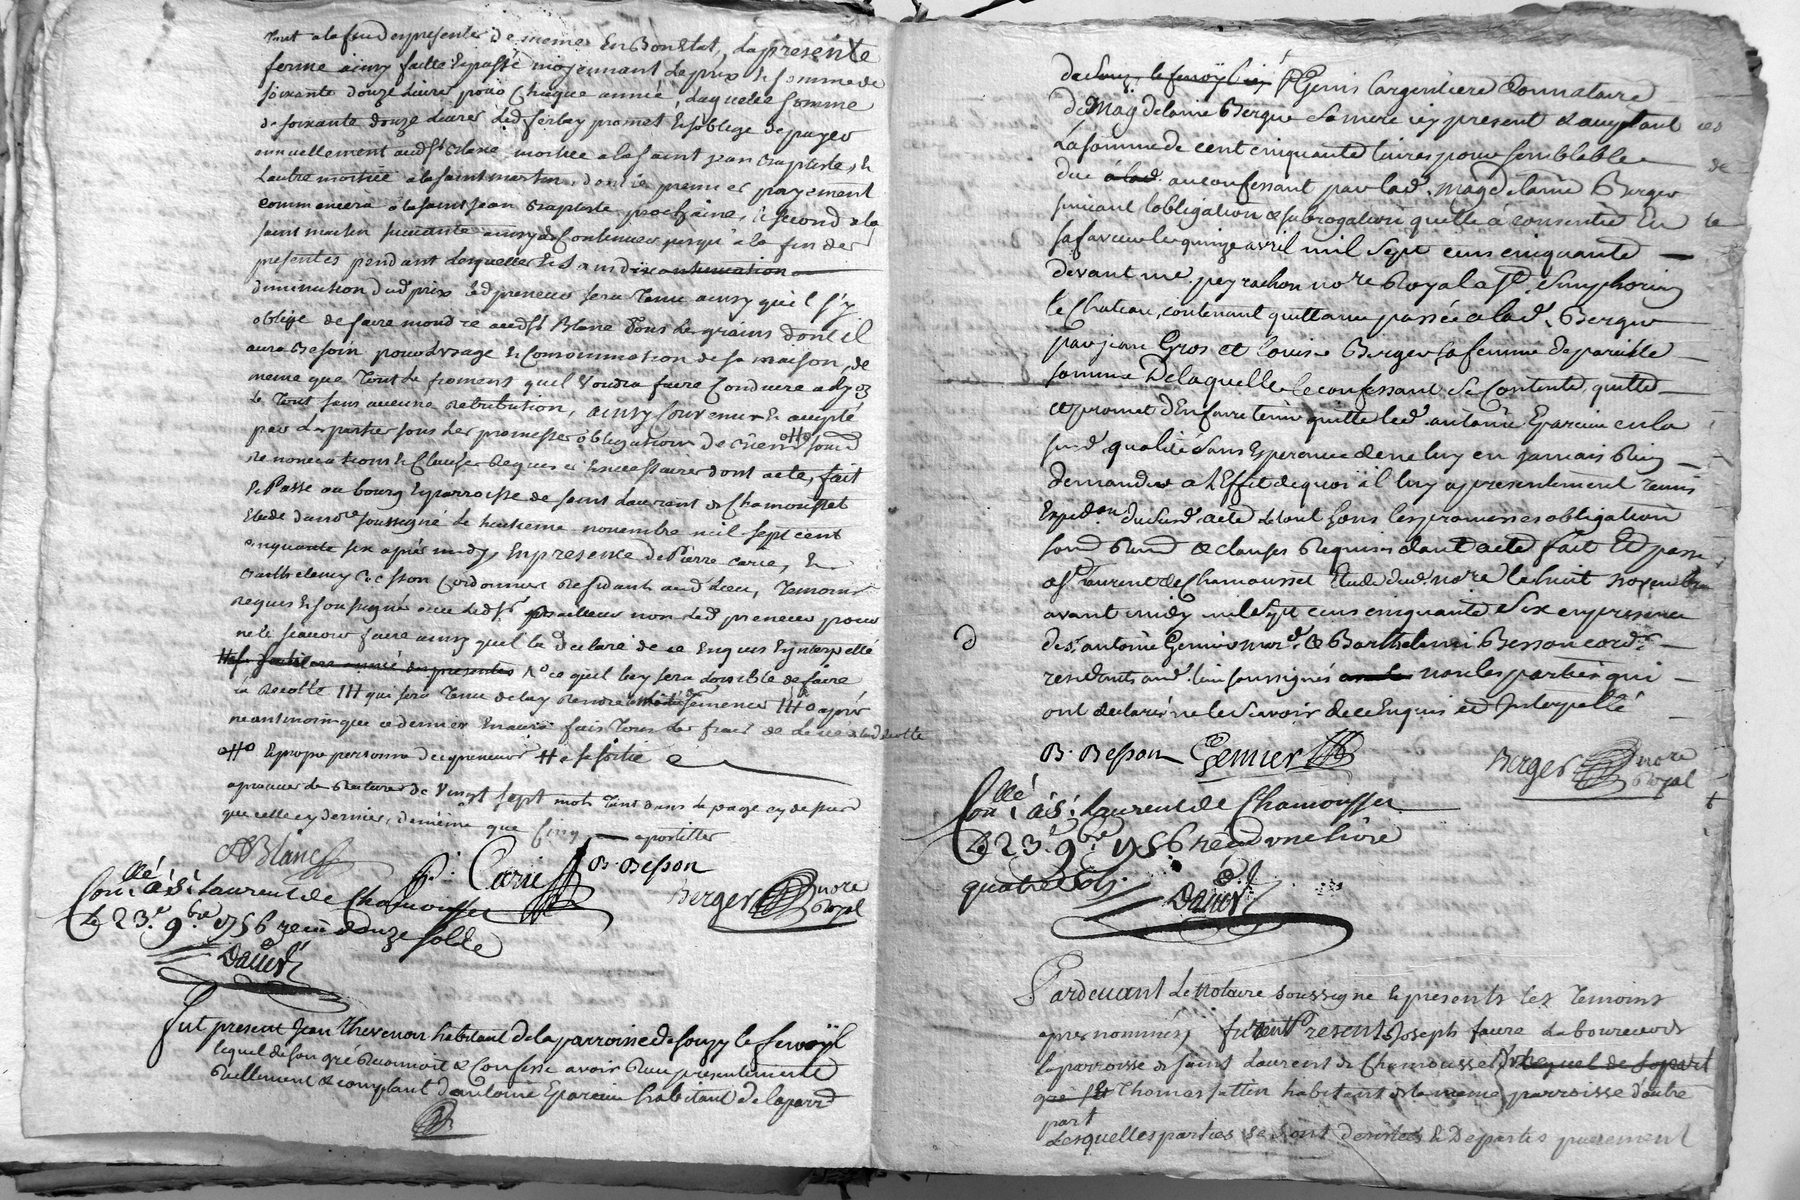 tout a la fin den presenter de meme En Bon Etat, La presente
ferme ainsy faitte & passé moyennant Le prix & somme de
soixante douze Livres pour Chaque année, Laquelle somme
de soixante douze Livres Led promet & soblige de payer
annuellement aud sr Blanc moitié a la saint jean Baptiste, &
Lautre moitié a la saint martin, dont le premier payement
commencera a la saint jean Baptiste prochaine, le second a la
saint martin suivante ainsy de Continuer jusqu'a la fin des
presentes pendant Lesquelles
diminution dud prix Led preneur sera Tenu ainsy quil s'y
oblige de faire moudre aud sr Blanc Tous Les grains dont il
aura Besoin pour Lusage & Consommation de sa maison, de
meme que Tout Le froment quil Voudra faire Conduire a Lyon
Le Tout sans aucune Retribution, ainsy Convenu & accepté
par Les parties sous Les promesses obligations de biens
Renonciations & Clauses Requises & necessaires dont acte, fait
& Passé au bourg & parroisse de saint Laurant de Chamousset
Etude du nore soussigné Le huitieme novembre mil sept cent
cinquante six après midy, En presence de Pierre Carie, &
Barthelemy Besson Cordonnier Residants aud Lieu, Temoins
Requis & soussigné avec Led sr Bailleur non Led preneur pour
ne le scavoir faire ainsy quil la declaré de ce Enquis & interpellé
ce quil luy sera Loisible de faire
la Recolte qui sera Tenu de luy Rendre semences après
neantmoins que ce dernier Laura fais Tous Les frais de Lad Recolte
& propre personne dud preneur # sa sortie
approuvé La Rature de Vingt sept mots Tant dans la page cy dessus
que celle cy dernier, de meme que Cinq apostilles
Blanc
P. Carie B. Besson
Berger nore Royal
Conllé à St Laurent de Chamousset
Le 23e 9bre 1756 reçu douze sols
Daniel
Fut present Jean Thevenon habitant de la parroisse de Souzy le
lequel de son gré Reconnoit & Confesse avoir Reçu presentement
Reellement & comptant d'antoine Eparcieu habitant de la parr
St Genis Largentiere donnataire
de Magdelaine Berger sa mere icy present & acceptant
La somme de cent cinquante livres pour semblable
due au confessant par lad. Magdelaine Berger
suivant lobligation & subrogation quelle a consentie En
sa faveur le quinze avril mil sept cens cinquante
devant me peyrachon nore Royal a St. Simphorien
le Chateau, contenant quittance passée a lad. Berger
par jean Gros et Louise Berger sa femme de pareille
somme De laquelle le confessant se Contente, quitte
et promet d'En faire tenir quitte led. antoine Eparcieu en la
susd. qualité sans Esperance de ne luy en jamais Rien
demander a lEffet de quoi il luy a presentement remis
Expedon du susd. acte le tout sous les promesses obligation
& clauses Requises dont acte fait Et passé
a St Laurent de Chamousset Etude dud. nore le huit novembre
avant midy mil sept cens cinquante six en presence
de sr. antoine Genier mard. & Barthelemi Besson cordr.
residants aud. lieu soussignés non les parties qui
ont declarés ne le scavoir de ce Enquis et Interpellé
B. Besson Genier
Berger nore Royal
Conllé à St Laurent de Chamousset
Le 23e 9bre 1756 reçu une livre
quatre sols.
Daniel
Pardevant Le Notaire soussigné & presents Les Temoins
apres nommés, furent Presents Joseph faure Laboureur de
La parroisse de saint Laurent de Chamousset
Thomas habitant de la meme parroisse d'autre
part
Lesquelles parties se sont desistées & Departies purement